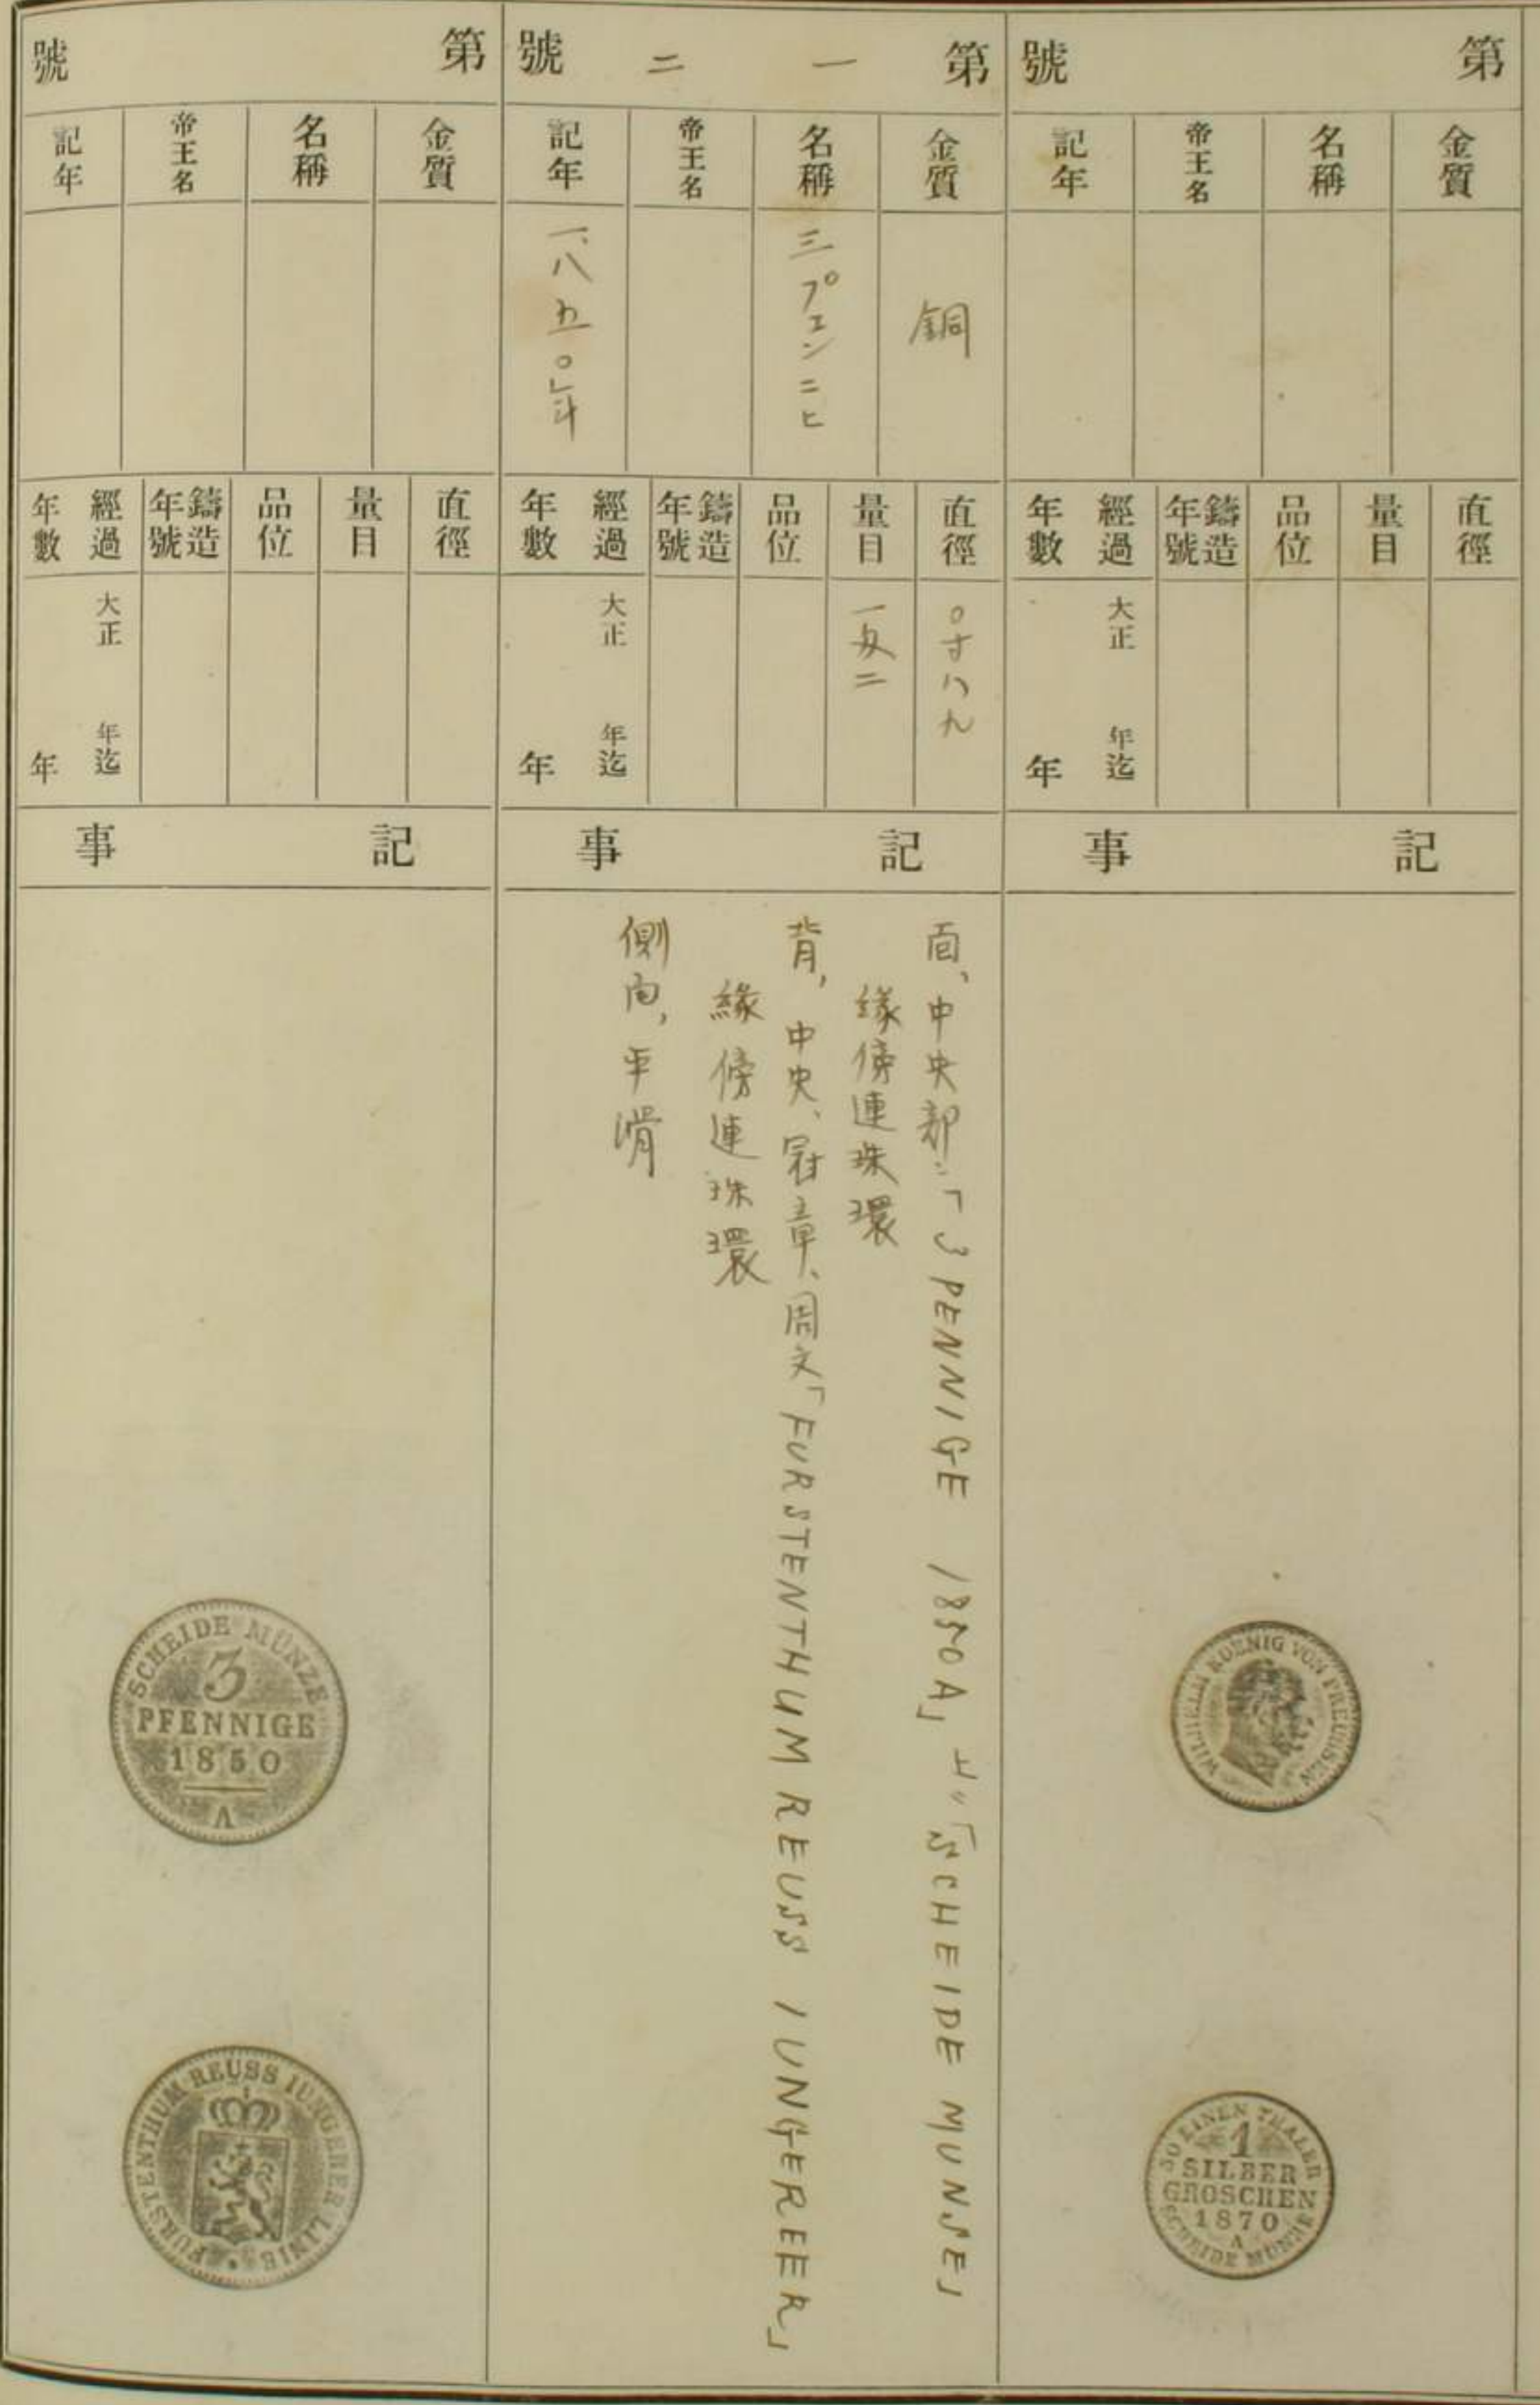 第　號
金質
名稱
帝王名
記年
直徑
量目
品位
鑄造年號
經過年數
大正　年迄
年
記事
WILHELM KOENIG VON PREUSSEN
30 EINEN THALER
1
SILBER
GROSCHEN
1870
A
SCHEIDE MÜNZE
第一二號
金質
銅
名稱
三プエンニヒ
帝王名
記年
一八五〇年
直徑
〇寸八九
量目
一匁二
品位
鑄造年號
經過年數
大正　年迄
年
記事
面、中央部ニ「3 PENNIGE 1850A」上〃「SCHEIDE MUNSE」
緣傍連珠環
背、中央、冠章、周文「FURSTENTHUM REUSS IUNGEREER」
緣傍連珠環
側面、平滑
第　號
金質
名稱
帝王名
記年
直徑
量目
品位
鑄造年號
經過年數
大正　年迄
年
記事
SCHEIDE MÜNZE
3
PFENNIGE
1850
A
FÜRSTENTHUM REUSS IÜNGERER LINIE